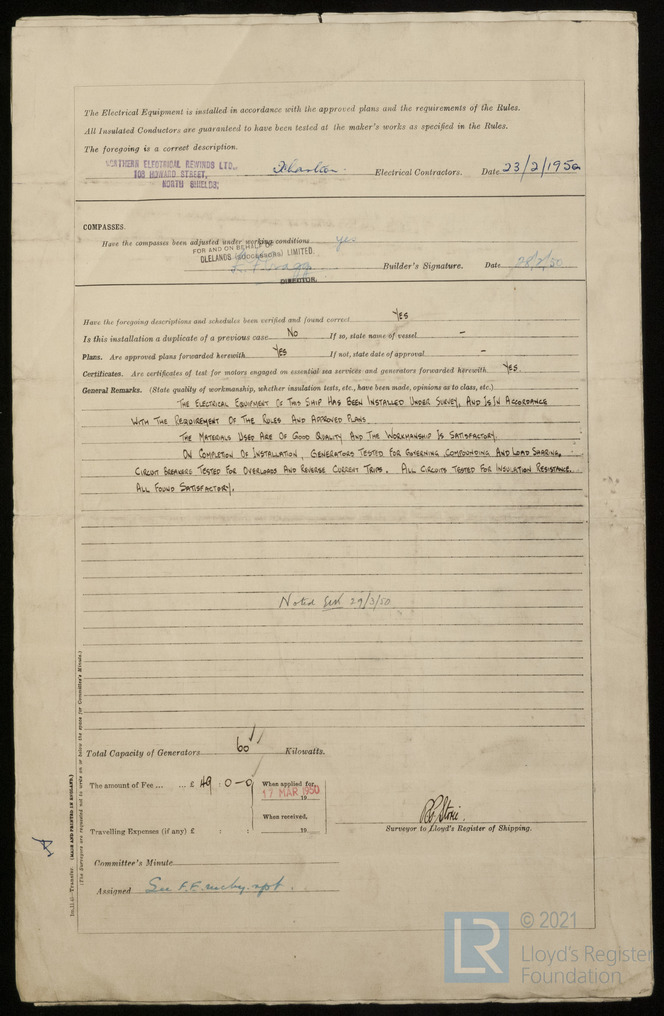 The Electrical Equipment is installed in accordance with the approved plans and the requirements of the Rules.
All Insulated Conductors are guaranteed to have been tested at the maker's works as specified in the Rules.
The foregoing is a correct description.
NORTHERN ELECTRICAL REWINDS LTD.,
108 HOWARD STREET,
NORTH SHIELDS,
Electrical Contractors. Date 23/2/1950
COMPASSES.
Have the compasses been adjusted under working conditions yes
FOR AND ON BEHALF OF
CLELANDS (SUCCESSORS) LIMITED.
Builder's Signature. Date 28/2/50
DIRECTOR.
Have the foregoing descriptions and schedules been verified and found correct YES
Is this installation a duplicate of a previous case No If so, state name of vessel –
Plans. Are approved plans forwarded herewith YES If not, state date of approval –
Certificates. Are certificates of test for motors engaged on essential sea services and generators forwarded herewith YES.
General Remarks. (State quality of workmanship, whether insulation tests, etc., have been made, opinions as to class, etc.)
THE ELECTRICAL EQUIPMENT OF THIS SHIP HAS BEEN INSTALLED UNDER SURVEY, AND IS IN ACCORDANCE
WITH THE REQUIREMENT OF THE RULES AND APPROVED PLANS
THE MATERIALS USED ARE OF GOOD QUALITY AND THE WORKMANSHIP IS SATISFACTORY.
ON COMPLETION OF INSTALLATION, GENERATORS TESTED FOR GOVERNING, COMPOUNDING AND LOAD SHARING,
CIRCUIT BREAKERS TESTED FOR OVERLOADS AND REVERSE CURRENT TRIPS. ALL CIRCUITS TESTED FOR INSULATION RESISTANCE.
ALL FOUND SATISFACTORY.
Noted 29/3/50
Total Capacity of Generators 60 Kilowatts.
The amount of Fee ... ... £ 49 : 0 – 0 When applied for,
17 MAR 1950
19
When received,
Travelling Expenses (if any) £ : : 19
Surveyor to Lloyd's Register of Shipping.
Committee's Minute
Assigned
(MADE AND PRINTED IN ENGLAND.)
(The Surveyors are requested not to write on or below the space for Committee's Minute.)
LR
© 2021
Lloyd's Register
Foundation